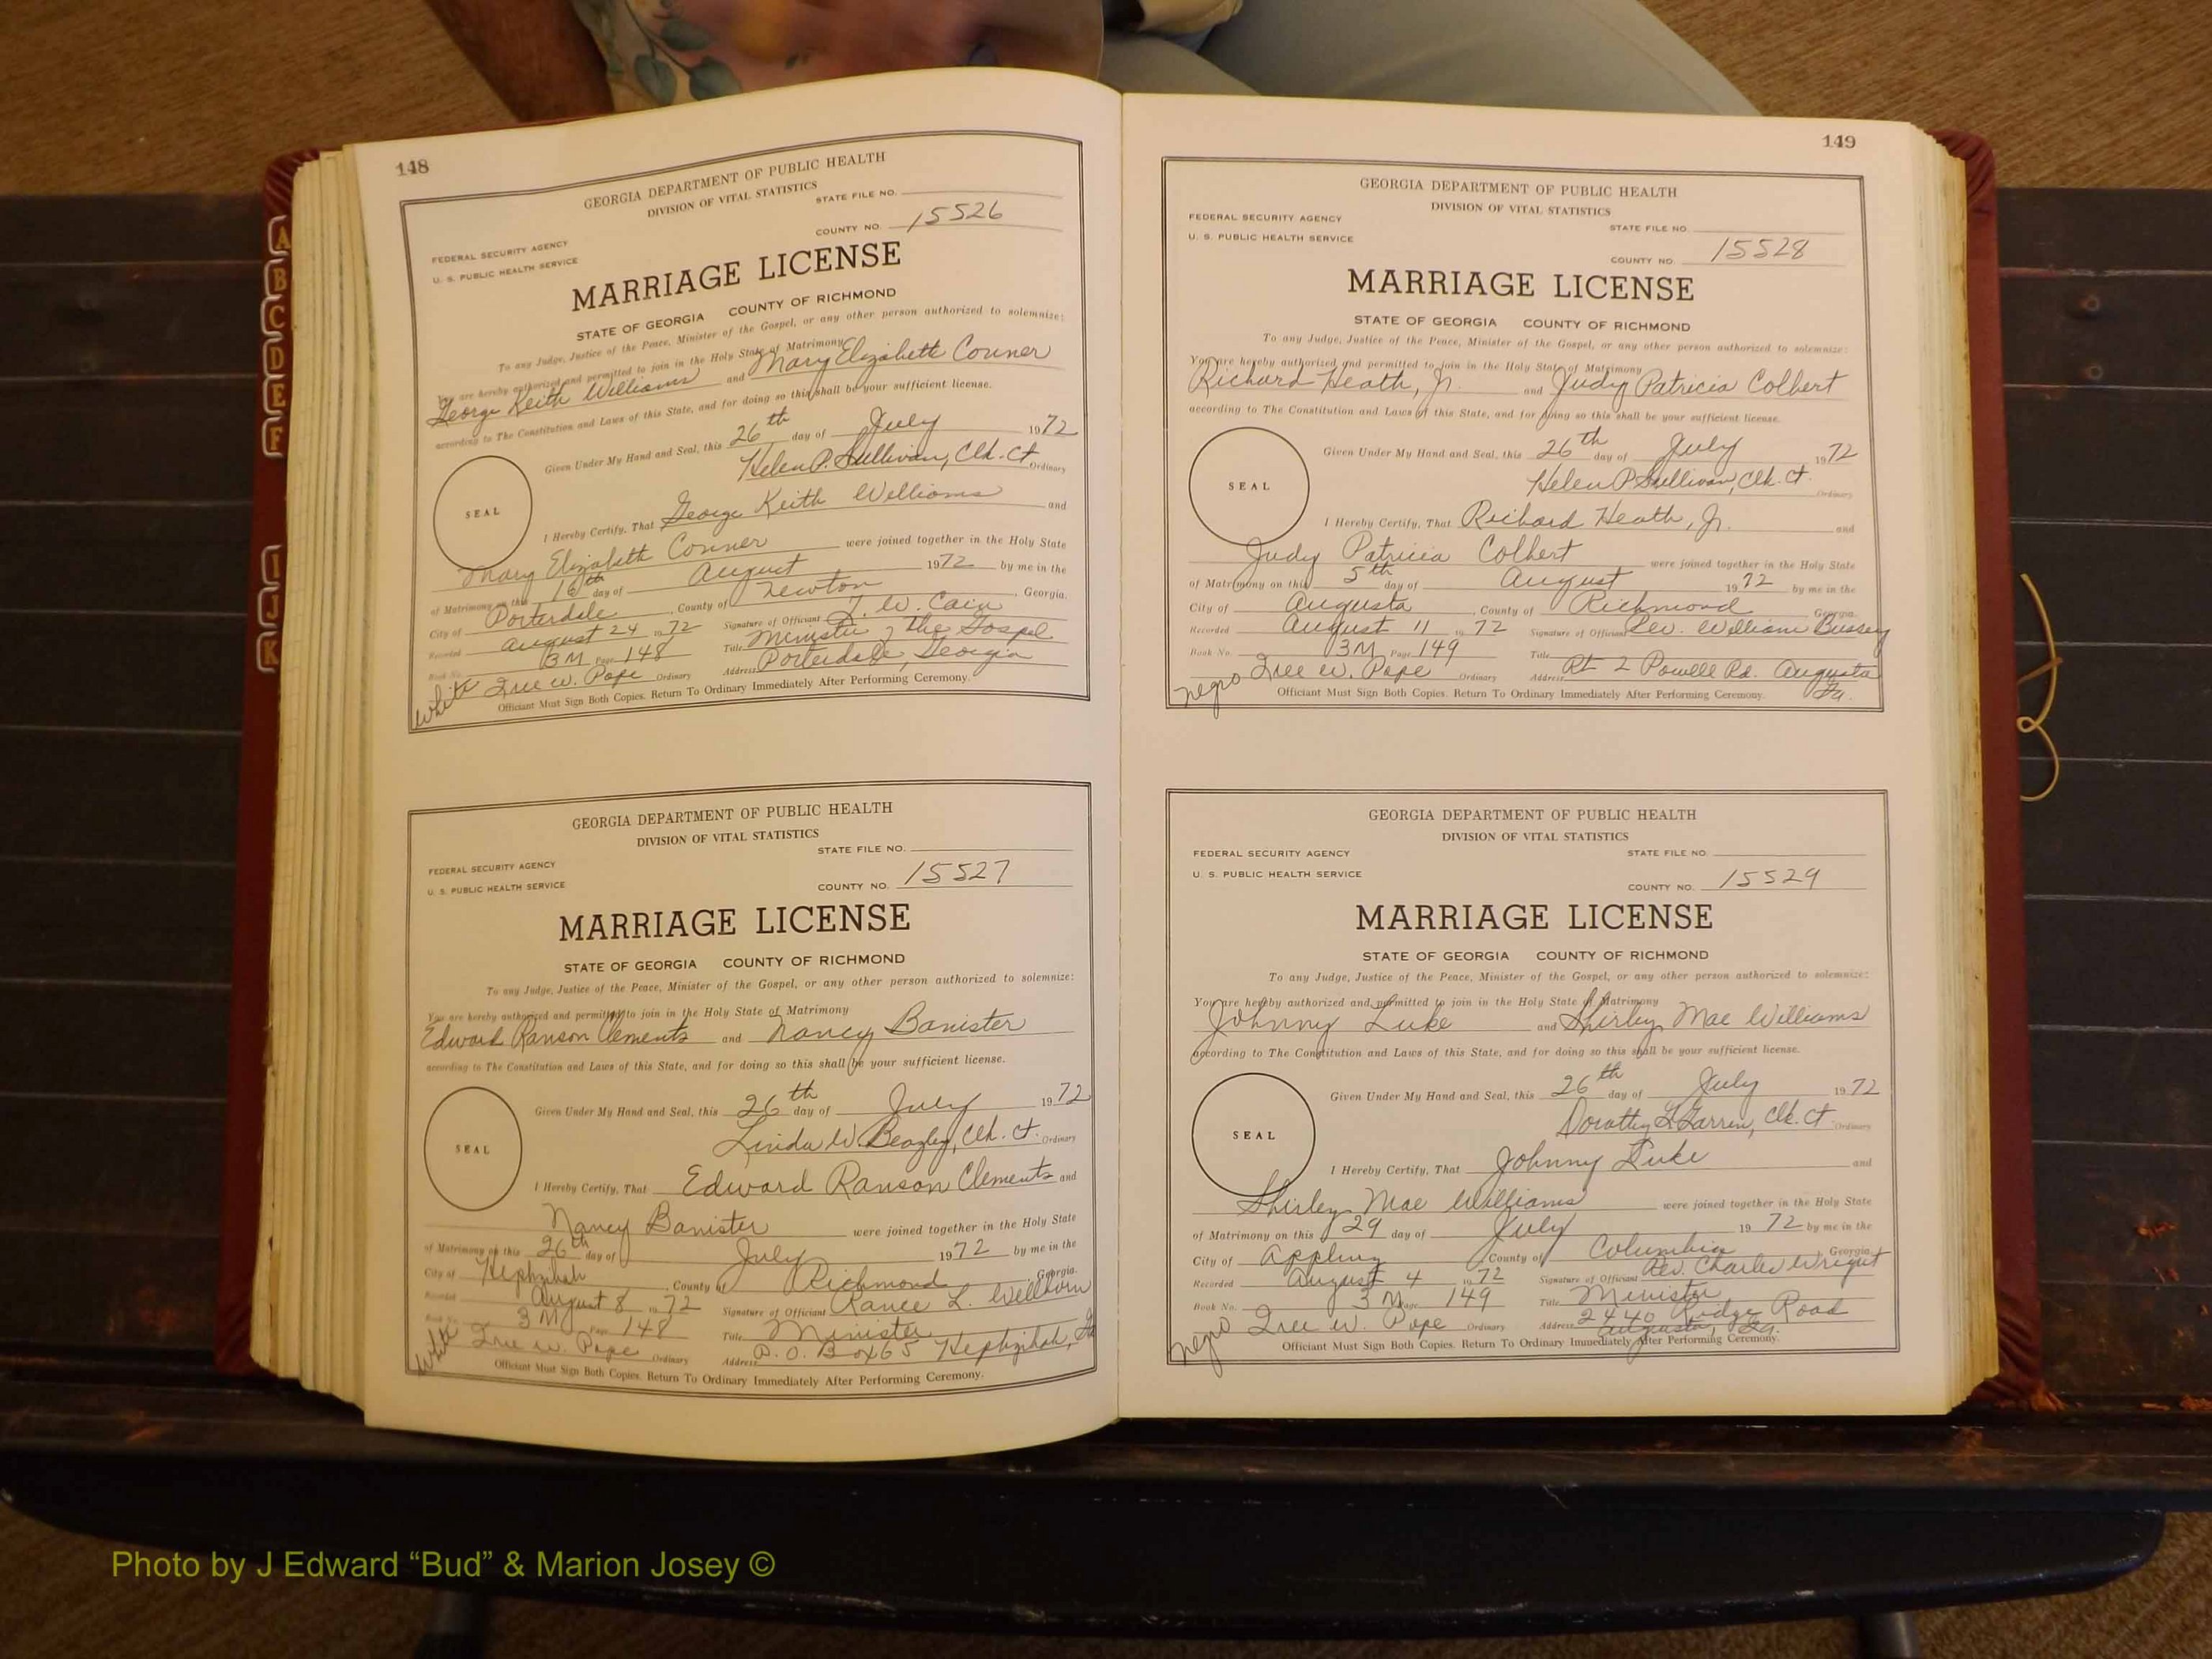 148
GEORGIA DEPARTMENT OF PUBLIC HEALTH
DIVISION OF VITAL STATISTICS
STATE FILE NO.
FEDERAL SECURITY AGENCY
U. S. PUBLIC HEALTH SERVICE
COUNTY NO. 15526
MARRIAGE LICENSE
STATE OF GEORGIA COUNTY OF RICHMOND
To any Judge, Justice of the Peace, Minister of the Gospel, or any other person authorized to solemnize:
You are hereby authorized and permitted to join in the Holy State of Matrimony
George Keith Williams and Mary Elizabeth Conner
according to The Constitution and Laws of this State, and for doing so this shall be your sufficient license.
Given Under My Hand and Seal, this 26th day of July 1972
Helen P. Sullivan, Clk. Ct. Ordinary
SEAL
I Hereby Certify, That George Keith Williams and
Mary Elizabeth Conner were joined together in the Holy State
of Matrimony on this 16th day of August 1972 by me in the
City of Porterdale, County of Newton, Georgia.
Recorded August 24 1972 Signature of Officiant T. W. Cain
Book No. 3M Page 148 Title Minister of the Gospel
True W. Pope Ordinary Address Porterdale, Georgia
White
Officiant Must Sign Both Copies. Return To Ordinary Immediately After Performing Ceremony.
GEORGIA DEPARTMENT OF PUBLIC HEALTH
DIVISION OF VITAL STATISTICS
STATE FILE NO.
FEDERAL SECURITY AGENCY
U. S. PUBLIC HEALTH SERVICE
COUNTY NO. 15527
MARRIAGE LICENSE
STATE OF GEORGIA COUNTY OF RICHMOND
To any Judge, Justice of the Peace, Minister of the Gospel, or any other person authorized to solemnize:
You are hereby authorized and permitted to join in the Holy State of Matrimony
Edward Ranson Clements and Nancy Banister
according to The Constitution and Laws of this State, and for doing so this shall be your sufficient license.
Given Under My Hand and Seal, this 26th day of July 1972
Linda W. Beazley, Clk. Ct. Ordinary
SEAL
I Hereby Certify, That Edward Ranson Clements and
Nancy Banister were joined together in the Holy State
of Matrimony on this 26th day of July 1972 by me in the
City of Hephzibah, County of Richmond Georgia.
Recorded August 8 1972 Signature of Officiant Rance L. Wellborn
Book No. 3M Page 148 Title Minister
True W. Pope Ordinary Address P. O. Box 65 Hephzibah, Ga
White
Officiant Must Sign Both Copies. Return To Ordinary Immediately After Performing Ceremony.
149
GEORGIA DEPARTMENT OF PUBLIC HEALTH
DIVISION OF VITAL STATISTICS
FEDERAL SECURITY AGENCY
STATE FILE NO.
U. S. PUBLIC HEALTH SERVICE
COUNTY NO. 15528
MARRIAGE LICENSE
STATE OF GEORGIA COUNTY OF RICHMOND
To any Judge, Justice of the Peace, Minister of the Gospel, or any other person authorized to solemnize:
You are hereby authorized and permitted to join in the Holy State of Matrimony
Richard Heath, Jr. and Judy Patricia Colbert
according to The Constitution and Laws of this State, and for doing so this shall be your sufficient license.
Given Under My Hand and Seal, this 26th day of July 1972
Helen P Sullivan, Clk. Ct. Ordinary
SEAL
I Hereby Certify, That Richard Heath, Jr. and
Judy Patricia Colbert were joined together in the Holy State
of Matrimony on this 5th day of August 1972 by me in the
City of Augusta, County of Richmond Georgia.
Recorded August 11 1972 Signature of Officiant Rev. William Bussey
Book No. 3M Page 149 Title
True W. Pope Ordinary Address Rt 2 Powell Rd. Augusta
Ga.
negro
Officiant Must Sign Both Copies. Return To Ordinary Immediately After Performing Ceremony.
GEORGIA DEPARTMENT OF PUBLIC HEALTH
DIVISION OF VITAL STATISTICS
FEDERAL SECURITY AGENCY
STATE FILE NO.
U. S. PUBLIC HEALTH SERVICE
COUNTY NO. 15529
MARRIAGE LICENSE
STATE OF GEORGIA COUNTY OF RICHMOND
To any Judge, Justice of the Peace, Minister of the Gospel, or any other person authorized to solemnize:
You are hereby authorized and permitted to join in the Holy State of Matrimony
Johnny Luke and Shirley Mae Williams
according to The Constitution and Laws of this State, and for doing so this shall be your sufficient license.
Given Under My Hand and Seal, this 26th day of July 1972
Dorothy Clk. Ct. Ordinary
SEAL
I Hereby Certify, That Johnny Luke and
Shirley Mae Williams were joined together in the Holy State
of Matrimony on this 29 day of July 1972 by me in the
City of Appling, County of Columbia, Georgia
Recorded August 4 1972 Signature of Officiant Rev. Charles Wright
Book No. 3M Page 149 Title Minister
True W. Pope Ordinary Address 2440 Ridge Road
Augusta, Ga.
negro
Officiant Must Sign Both Copies. Return To Ordinary Immediately After Performing Ceremony.
A
B
C
D
E
F
I
J
K
Photo by J Edward “Bud” & Marion Josey ©